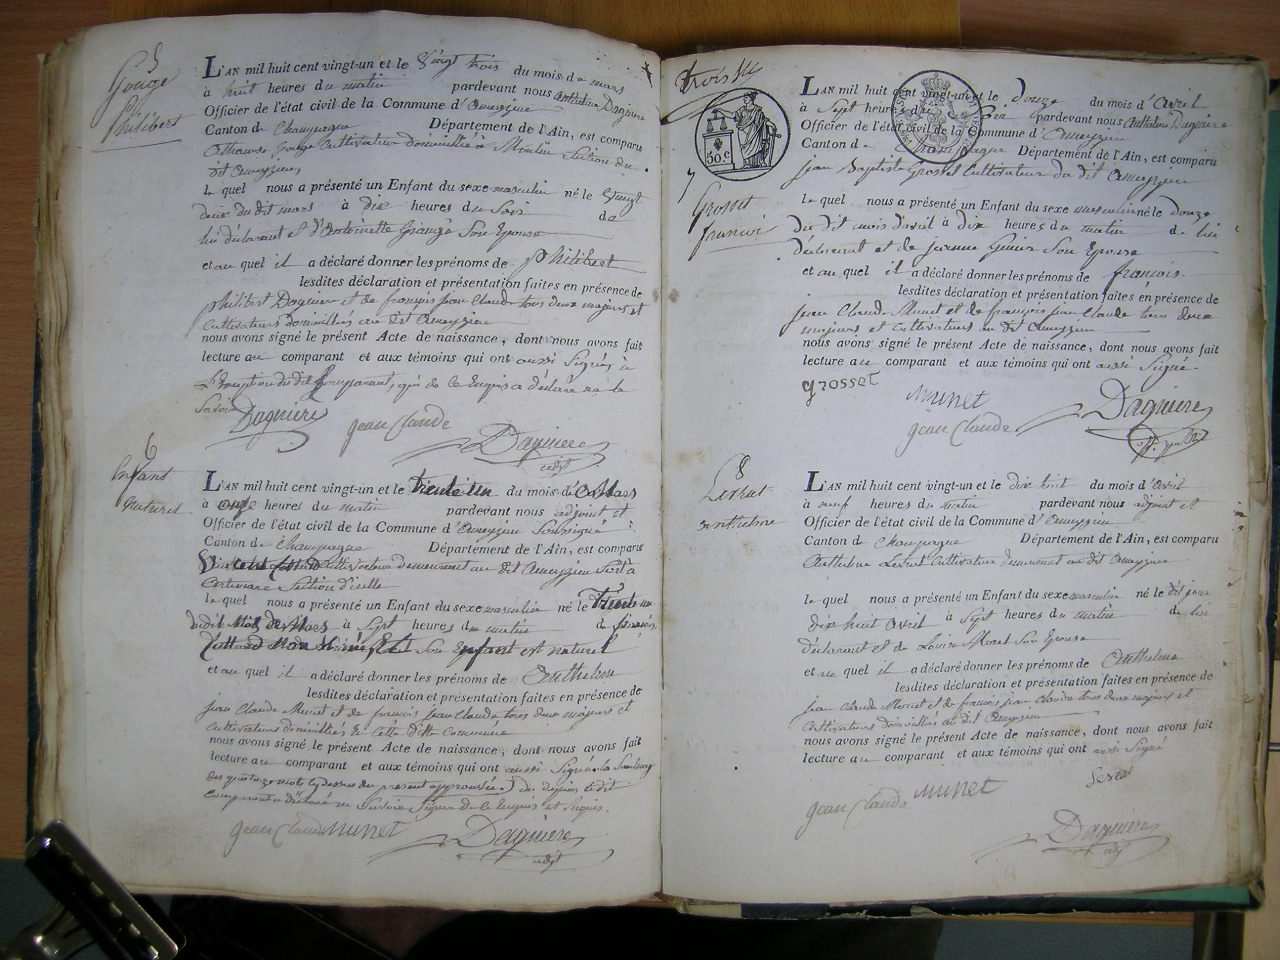 5
Gouge
Philibert
L'AN mil huit cent vingt-un et le Vingt trois du mois de mars
à huit heures du matin pardevant nous Anthelme Dagniere
Officier de l'état civil de la Commune d'Ameyzieu
Canton de Champagne Département de l'Ain, est comparu
Gouge Cultivateur domicilié à Section du
dit Ameyzieu
le quel nous a présenté un Enfant du sexe masculin né le Vingt
deux du dit mars à dix heures du Soir de
lui déclarant et d'Antoinette Son Epouse
et au quel il a déclaré donner les prénoms de Philibert
lesdites déclaration et présentation faites en présence de
philibert Dagniere et de françois jean Claude tous deux majeurs et
Cultivateurs domiciliés au dit Ameyzieu
nous avons signé le présent Acte de naissance, dont nous avons fait
lecture au comparant et aux témoins qui ont aussi Signés à
L'Exception du dit Comparant, qui de ce Enquis a déclaré ne le
Savoir
Dagniere jean Claude Dagniere
adjt
6
Enfant
naturel
L'AN mil huit cent vingt-un et le trente un du mois de Mars
à onze heures du matin pardevant nous adjoint et
Officier de l'état civil de la Commune d'Ameyzieu Soussigné
Canton de Champagne Département de l'Ain, est comparu
Cultivateur demeurant au dit Ameyzieu
Section d'icelle
le quel nous a présenté un Enfant du sexe masculin né le trente un
du dit Mois de Mars à Sept heures du matin de
Son Enfant est naturel
et au quel il a déclaré donner les prénoms de Anthelme
lesdites déclaration et présentation faites en présence de
jean Claude Munet et de françois jean Claude tous deux majeurs et
Cultivateurs domiciliés de Cette ditte Commune
nous avons signé le présent Acte de naissance, dont nous avons fait
lecture au comparant et aux témoins qui ont aussi Signé
du présent approuvée
Comparant a déclaré ne Savoir Signer de ce Enquis et requis.
jean Claude Munet Dagniere
adjt
trois
30 c
7
Grosset
francois
L'AN mil huit cent vingt-un et le douze du mois d'Avril
à Sept heures du Soir pardevant nous Anthelme Dagniere
Officier de l'état civil de la Commune d'Ameyzieu
Canton de Champagne Département de l'Ain, est comparu
jean Baptiste Grosset Cultivateur du dit Ameyzieu
le quel nous a présenté un Enfant du sexe masculin né le douze
du dit mois d'avril à dix heures du matin de lui
déclarant et de jeanne Son Epouse
et au quel il a déclaré donner les prénoms de françois
lesdites déclaration et présentation faites en présence de
jean Claude Munet et de françois jean Claude tous deux
majeurs et cultivateurs au dit Ameyzieu
nous avons signé le présent Acte de naissance, dont nous avons fait
lecture au comparant et aux témoins qui ont aussi Signé
grosset
Munet
jean Claude Dagniere
8
Lesrat
anthelme
L'AN mil huit cent vingt-un et le dix huit du mois d'avril
à neuf heures du matin pardevant nous adjoint et
Officier de l'état civil de la Commune d'Ameyzieu
Canton de Champagne Département de l'Ain, est comparu
Anthelme Cultivateur demeurant au dit Ameyzieu
le quel nous a présenté un Enfant du sexe masculin né le dit jour
dix huit Avril à Sept heures du matin de lui
déclarant et de Louise Morel Son Epouse
et au quel il a déclaré donner les prénoms de Anthelme
lesdites déclaration et présentation faites en présence de
jean Claude Munet et de francois jean Claude tous deux majeurs et
Cultivateurs domiciliés au dit Ameyzieu
nous avons signé le présent Acte de naissance, dont nous avons fait
lecture au comparant et aux témoins qui ont aussi Signé
jean Claude Munet
Dagniere
adjt